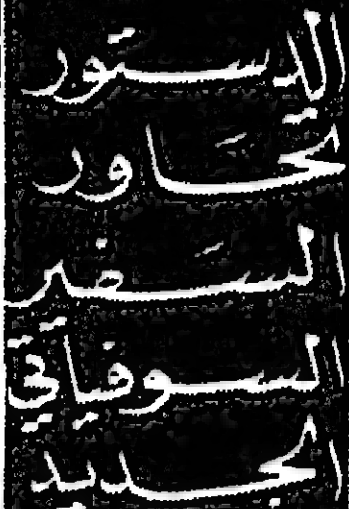 الدستور
تحَاور
السَفير
السوفياتي
الجديد